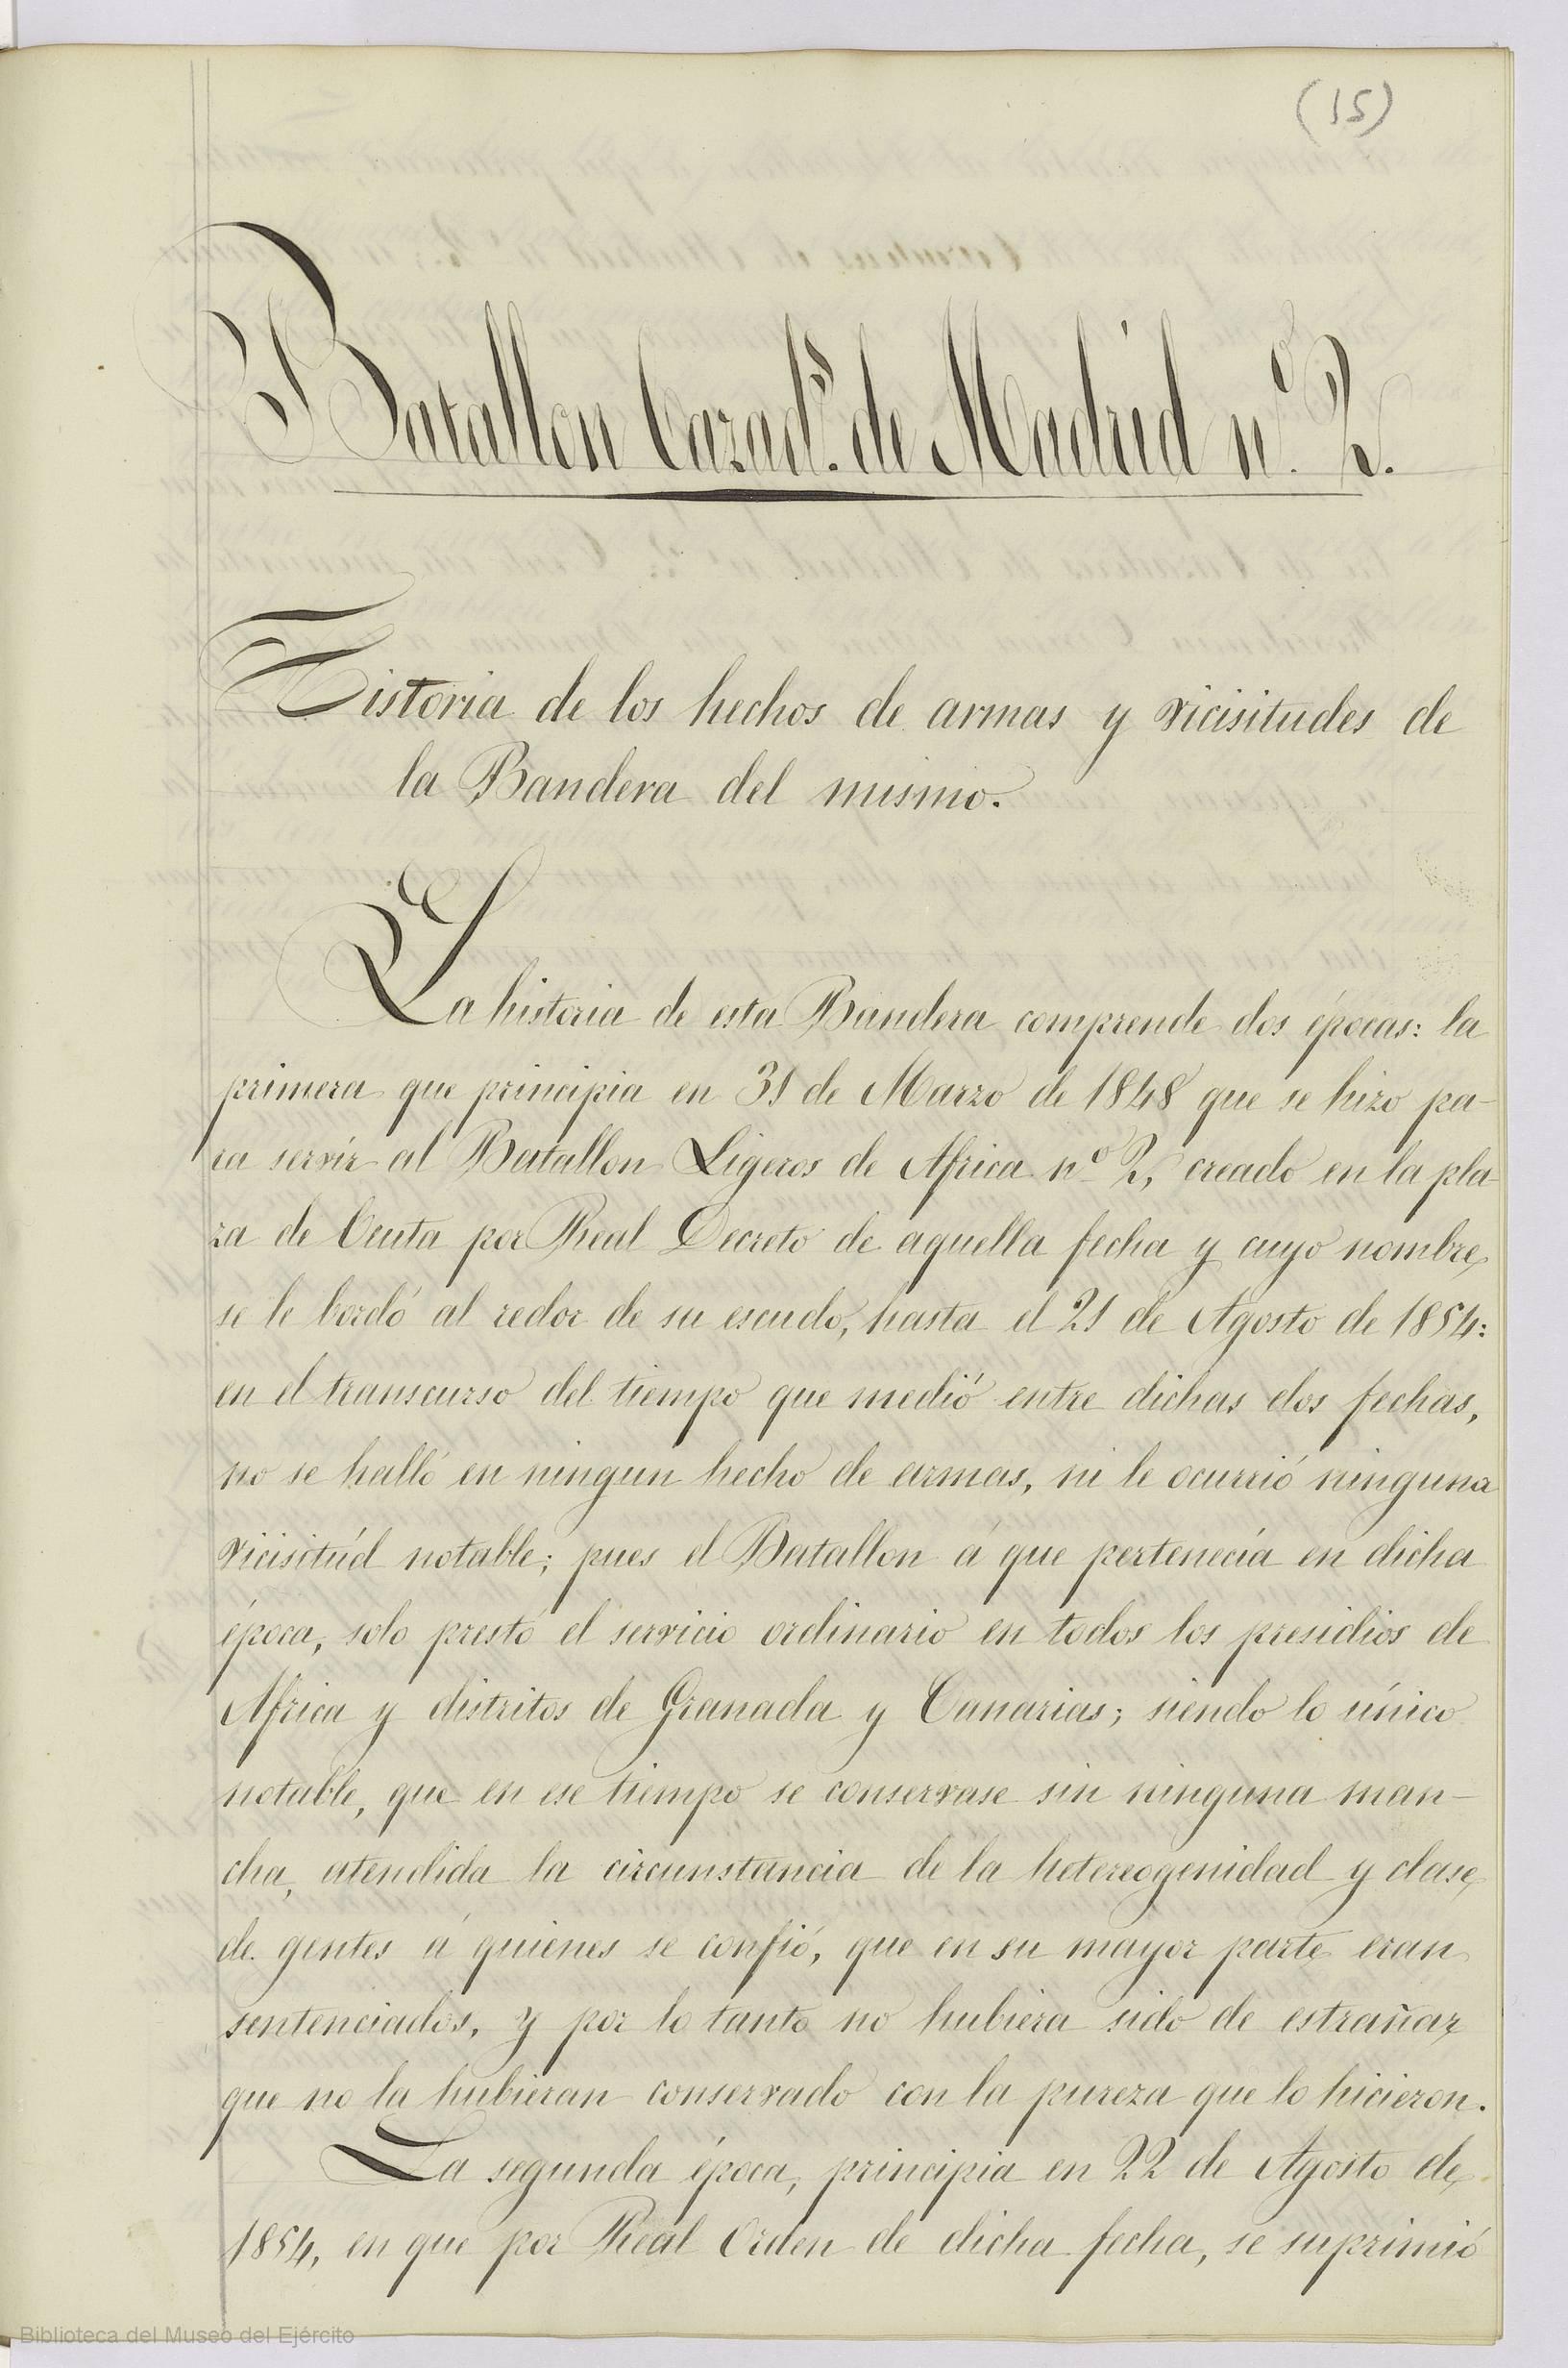 (15)
Batallon Cazad.s de Madrid nº. 2.
Historia de los hechos de armas y vicisitudes de
la Bandera del mismo.
La historia de esta Bandera comprende dos épocas: la
primera que principia en 31 de Marzo de 1848 que se hizo pa-
ra servir al Batallon Ligeros de Africa nº 2, creado en la pla
za de Ceuta por Real Decreto de aquella fecha y cuyo nombre
se le bordó al redor de su escudo, hasta el 21 de Agosto de 1854:
en el transcurso del tiempo que medió entre dichas dos fechas,
no se halló en ningun hecho de armas, ni le ocurrió ninguna
vicisitúd notable; pues el Batallon á que pertenecía en dicha
época, solo prestó el servicio ordinario en todos los presidios de
Africa y distritos de Granada y Canarias; siendo lo único
notable, que en ese tiempo se conservase sin ninguna man-
cha, atendida la circunstancia de la hetereogenidad y clase
de gentes á quienes se confió, que en su mayor parte eran
sentenciados, y por lo tanto no hubiera sido de estrañar
que no la hubieran conservado con la pureza que lo hicieron.
La segunda época, principia en 22 de Agosto de
1854, en que por Real Orden de dicha fecha, se suprimió
Biblioteca del Museo del Ejército